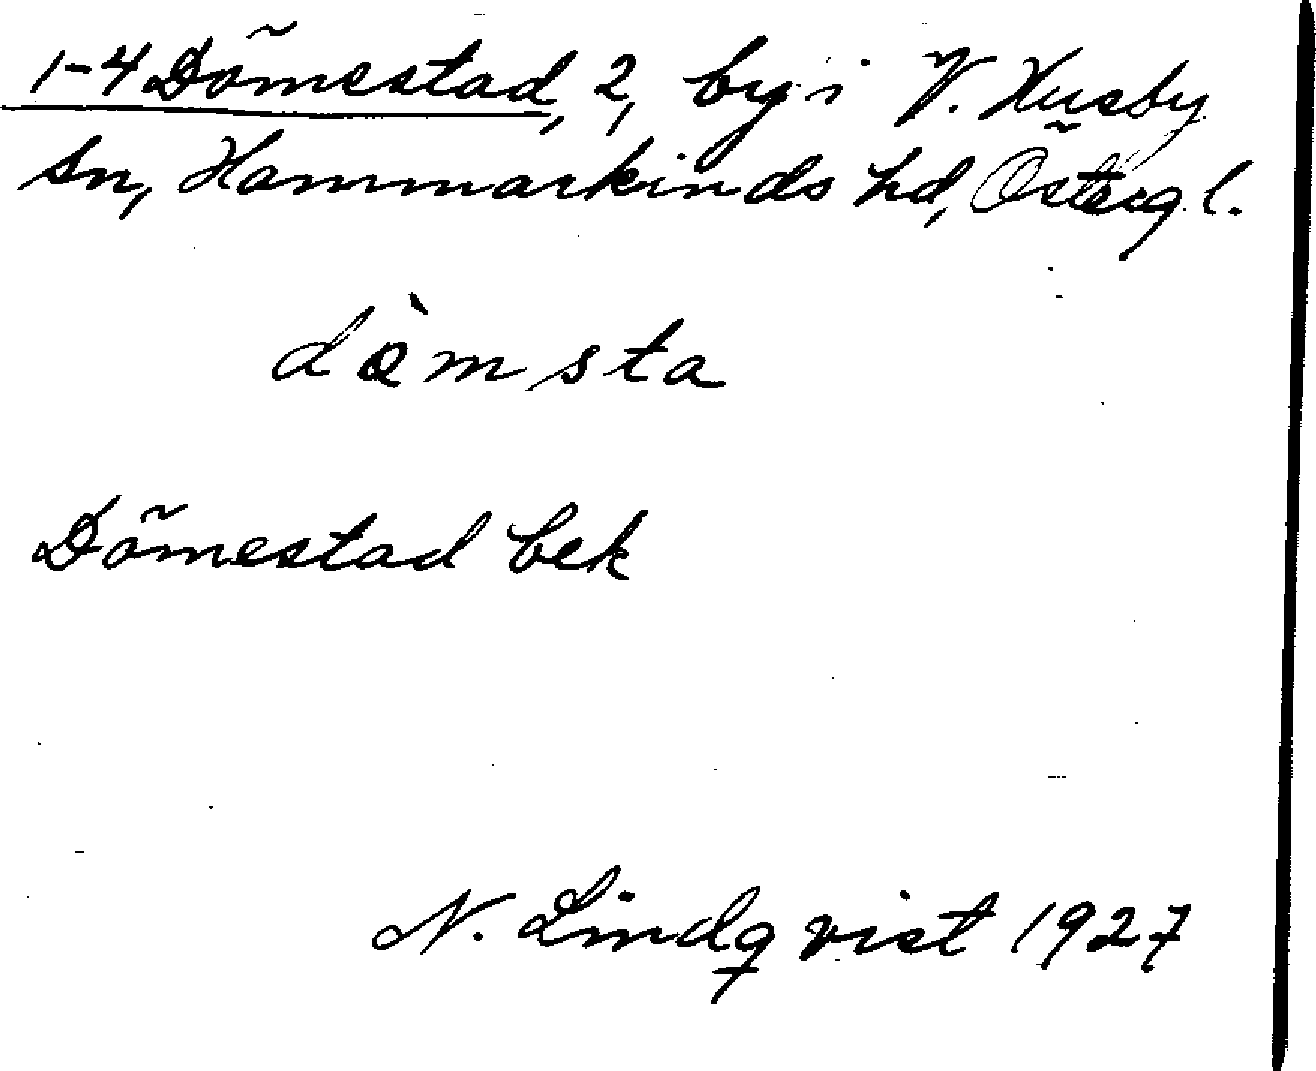 1-4 Dömestad, 2, by i V. Husby
sn, Hammarkinds hd, Östergl.
dòmsta
Dömestad bek
N. Lindqvist 1927